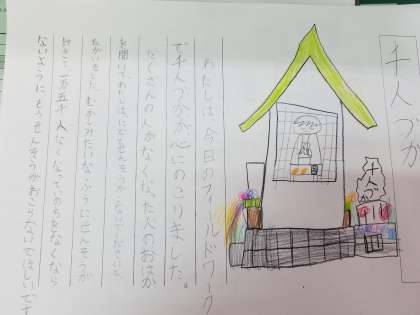 千人づか
千人づか
わたしは、今日のフィールドワーク
で千人づかが心にのこりました。
たくさんの人がなくなった人のおはか
を聞いて、わたしは、にどとせんそうが
ねがいました。むかしみたいなふうにせんそうが
おきて一万五千人なくなって、いのちをなくなら
ないようにもうせんそうがおこらないでほしいです